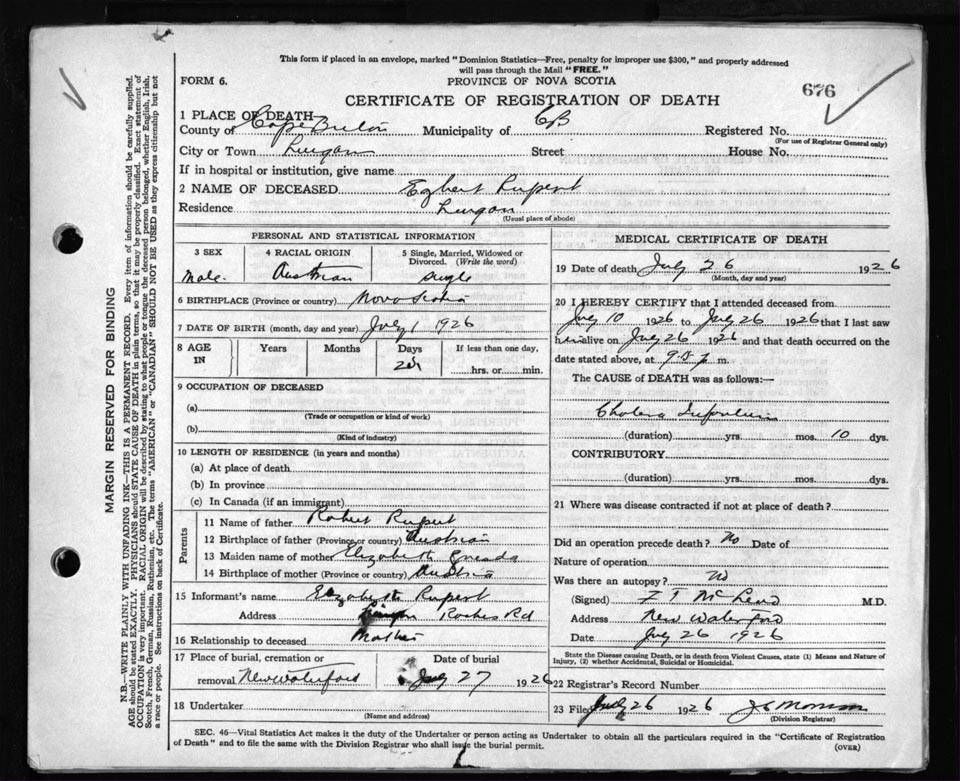 This form if placed in an envelope, marked "Dominion Statistics—Free, penalty for improper use $300," and properly addressed
will pass through the Mail "FREE."
FORM 6.
PROVINCE OF NOVA SCOTIA
676
CERTIFICATE OF REGISTRATION OF DEATH
1 PLACE OF DEATH
County of Cape Breton Municipality of CB Registered No.
(For use of Registrar General only)
City or Town Lingan Street House No.
If in hospital or institution, give name
2 NAME OF DECEASED Egbert Rupert
Residence Lingan
(Usual place of abode)
PERSONAL AND STATISTICAL INFORMATION
3 SEX 4 RACIAL ORIGIN 5 Single, Married, Widowed or
Divorced. (Write the word)
Male. Austrian Single
6 BIRTHPLACE (Province or country) Nova Scotia
7 DATE OF BIRTH (month, day and year) July 1 1926
8 AGE IN Years Months Days If less than one day,
hrs. or min.
9 OCCUPATION OF DECEASED
(a)
(Trade or occupation or kind of work)
(b)
(Kind of industry)
10 LENGTH OF RESIDENCE (in years and months)
(a) At place of death
(b) In province
(c) In Canada (if an immigrant)
Parents
11 Name of father Robert Rupert
12 Birthplace of father (Province or country) Austrian
13 Maiden name of mother Elizabeth
14 Birthplace of mother (Province or country) Austria
15 Informant's name Elizabeth Rupert
Address Roaches Rd
16 Relationship to deceased Mother
17 Place of burial, cremation or Date of burial
removal New Waterford July 27 1926
18 Undertaker
(Name and address)
MEDICAL CERTIFICATE OF DEATH
19 Date of death July 26 1926
(Month, day and year)
20 I HEREBY CERTIFY that I attended deceased from
July 10 1926 to July 26 1926 that I last saw
h alive on July 26 1926 and that death occurred on the
date stated above, at m.
The CAUSE of DEATH was as follows:—
Cholera Infantum
(duration) yrs. mos. 10 dys.
CONTRIBUTORY
(duration) yrs. mos. dys.
21 Where was disease contracted if not at place of death?
Did an operation precede death? No Date of
Nature of operation
Was there an autopsy? No
(Signed) McLeod M.D.
Address New Waterford
Date July 26 1926
State the Disease causing Death, or in death from Violent Causes, state (1) Means and Nature of
Injury, (2) whether Accidental, Suicidal or Homicidal.
22 Registrar's Record Number
23 Filed July 26 1926
(Division Registrar)
SEC. 46—Vital Statistics Act makes it the duty of the Undertaker or person acting as Undertaker to obtain all the particulars required in the "Certificate of Registration
of Death" and to file the same with the Division Registrar who shall issue the burial permit.
(OVER)
MARGIN RESERVED FOR BINDING
N.B.—WRITE PLAINLY WITH UNFADING INK—THIS IS A PERMANENT RECORD. Every item of information should be carefully supplied.
AGE should be stated EXACTLY. PHYSICIANS should STATE CAUSE OF DEATH in plain terms, so that it may be properly classified. Exact statement of
OCCUPATION is very important. RACIAL ORIGIN will be described by stating to what people or tongue the deceased person belonged, whether English, Irish,
Scotch, French, German, Russian, Ruthenian, etc. The terms "AMERICAN" or "CANADIAN" SHOULD NOT BE USED as they express citizenship but not
a race or people. See instructions on back of Certificate.